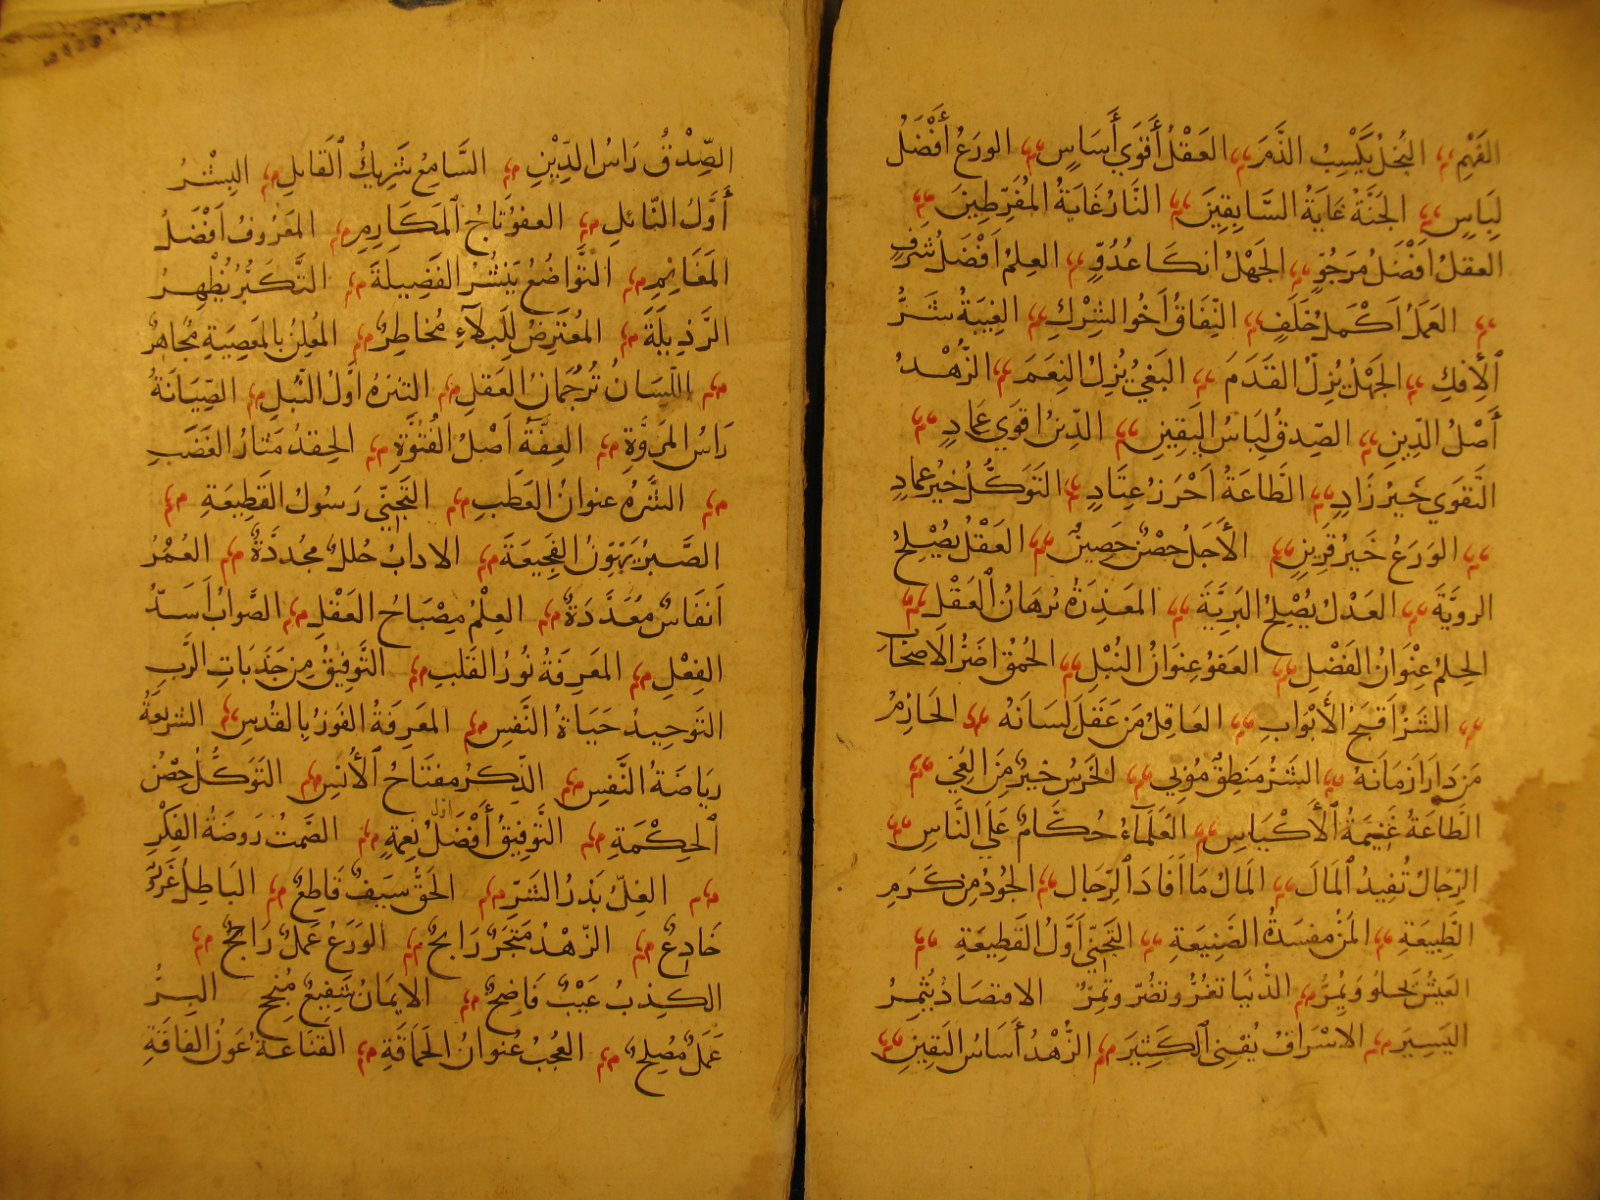 الفَهْمِ البُخلُ يَكْسِبُ الذَّمَ العَقْلُ أَقوَي أَسَاسٍ الورَعُ أَفْضَلُ
لِبَاسٍ الجَنَّةُ غَايَةُ السَّابِقِينَ النَّارُ غَايَةُ المُفَرِّطِينَ
العقلُ اَفْضَلُ مَرجُوٍّ الجَهْلُ انكَا عُدُوٍّ العِلمُ اَفْضَلُ شرَفٍ
العَمَلُ اَكْمَلُ خَلَفٍ النِّفَاقُ أَخُو الشِركِ الغِيبَةُ شَرُّ
الأِفكِ الجَهلُ يُزِلُّ القَدَمَ البَغيُ يُزِيلُ النِعَمَ الزُّهْدُ
أَصْلُ الدِّينِ الصِّدقُ لِبَاسُ اليَقِينِ الدِّينُ اقوَي عَمَادٍ
التَّقوَي خَيرُ زَادٍ الطَّاعَةُ اَحْرَزُ عِتَادٍ التَوَكُّلُ خَيرُ عِمادٍ
الوَرَعُ خَيرُ قَرِينٍ الأَجَلُ حِصْنٌ حَصِينٌ العَقْلُ يُصْلِحُ
الروِيَّةَ العَدْلُ يُصْلِحُ البَرِيَّةَ المَعَذِرَةُ بُرهَانُ العَقْلِ
الحِلمُ عِنْوَانُ الفَضْلِ العَفوُ عِنوَانُ النُبْلِ الحُمْقُ اَضَرُّ الاَصحَابِ
الشَرُّ اَقبَحُ الأَبْوَابِ العَاقِلُ مَن عَقَلَ لِسَانَهُ الحَازِمُ
مَن دَارَا زمَانَهُ الشَرُّ مَنطِقٌ مُوَبِي الخَرَسُ خيرٌ مِنَ العِيِّ
الطَّاعَةُ غَنِيمَةُ الأَكْيَاسِ العُلَمَآءُ حُكَّامٌ عَلَي النَّاسِ
الرِّجَالُ تُفِيدُ المَالَ المَالُ مَا اَفَادَ الرِّجَال الجُودُ مِن كَرَمِ
الطَّبِيعَةِ المَنُّ مفسَدَةُ الصَّنِيعَةِ التَّجَنِّي اَوَّلُ القَطِيعَةِ
العَيشُ يَحلُو وَيُمِرُّ الدُّنْيَا تغُرُّ وتضُرّ وتَمُرُّ الاقتصَادُ يُثَمِرُ
اليَسِيرَ الاسْرَافُ يُفنِي الكَثِيَر الزُّهْدُ أَسَاسُ اليَقِينِ
الصِّدْقُ رَاسُ الدِّيْنِ السَّامِعُ شَرِيكُ القَائلِ البِشْرُ
أَوَّلُ النَّائلِ العفوُ تَاجُ المَكَارِمِ المَعْرُوفُ اَفْضَلُ
المَغَانِمِ التَّوَاضُعُ يَنشُرُ الفَضِيلَةَ التَّكَبُّرُ يُظْهِرُ
الرَّذِيلَةَ المُعْتَرِضُ لِلبَلآءِ مُخاطِرٌ المُعْلِنُ بالمعَصِيَةِ مُجاهِرٌ
اللّسَانُ تُرْجُمَانُ العَقلِ التنزهُ اوَّلُ النُّبلِ الصِّيَانَةُ
رَاسُ المرَوَّةِ العِفَّةُ اَصْلُ الفُتوَّةِ الحِقدُ مَثارُ الغَضَبِ
الشَّرَهُ عنوانُ العَطبِ التَجَنِّي رَسُولُ القَطِيعَةِ
الصَّبرُ يُهَوِّنُ الفَجِيعَةَ الادابُ حُللٌ مجُددَّةٌ العُمْرُ
اَنفَاسٌ مُعَدَّدَةٌ العِلْمُ مِصْبَاحُ العَقْلِ الصَّوابُ اَسَدُّ
الفِعْلِ المَعَرِفَةُ نُورُ القَلبِ التَّوفِيقُ مِن جَذَبَاتِ الرَّب
التَوحِيدُ حَيَاةُ النَّفسِ المعَرِفَةُ الفَوزُ بِالقُدسِ الشريعَةُ
رِيَاضَةُ النَّفسِ الذِّكرُ مفتَاحُ الأُنسِ التَوَكُّلُ حِصْنُ
الحِكْمَةِ التَّوفِيقُ أَفْضَلُ نِعمَةٍ الصَّمتُ رَوضَةُ الفِكْرِ
الغِلُّ بَذرُ الشَرِّ الحَقُّ سَيفٌ قَاطِعٌ البَاطِلُ غَرَرٌ
خَادِعٌ الزّهْدُ مَتْجَرٌ رَابحٌ الوَرَعُ عَمَلٌ رَاجِحٌ
الكِذبُ عَيْبٌ فَاضِحٌ الايمَانُ شَفِيعٌ مُنجِحٌ البِرُّ
عَمَلٌ مُصْلِحٌ العُجْبُ عُنوانُ الحَمَاقَةِ القَنَاعَةُ عَونُ الفاقَةِ